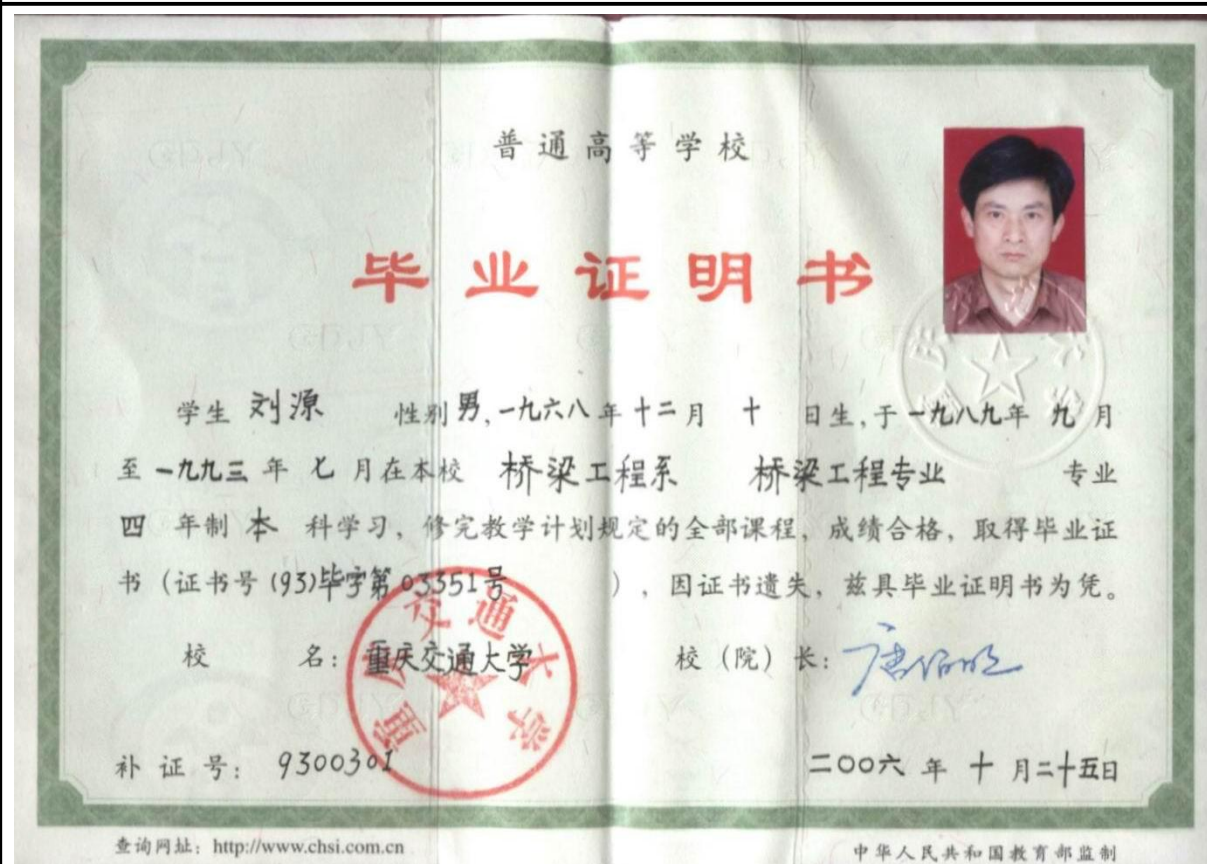 普通高等学校
毕业证明书
学生 刘源 性别 男, 一九六八 年 十二 月 十 日生, 于 一九八九 年 九 月
至 一九九三 年 七 月在本校 桥梁工程系 桥梁工程专业 专业
四 年制 本 科学习, 修完教学计划规定的全部课程, 成绩合格, 取得毕业证
书 (证书号 (93)毕字第03351号 ), 因证书遗失, 兹具毕业证明书为凭。
校 名: 重庆交通大学 校 (院) 长: 唐伯明
重庆交通大学
补 证 号: 9300301 二〇〇六 年 十 月二十五日
查询网址: http://www.chsi.com.cn 中华人民共和国教育部监制